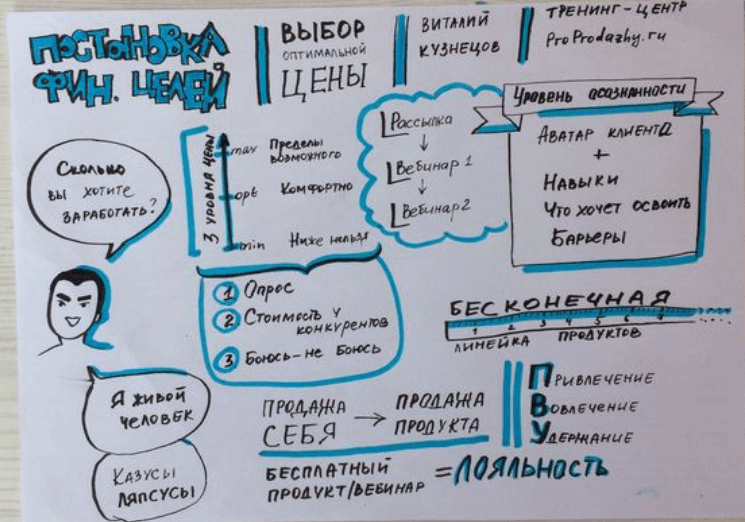 ПОСТАНОВКА
ФИН. ЦЕЛЕЙ
ВЫБОР
ОПТИМАЛЬНОЙ
ЦЕНЫ
ВИТАЛИЙ
КУЗНЕЦОВ
ТРЕНИНГ-ЦЕНТР
ProProdazhy.ru
Сколько
вы хотите
заработать?
3 УРОВНЯ ЦЕНЫ
max Пределы
возможного
opt Комфортно
min Ниже нельзя
1 Опрос
2 Стоимость у
конкурентов
3 Боюсь-не боюсь
Рассылка
↓
Вебинар 1
↓
Вебинар 2
Уровень осознанности
АВАТАР КЛИЕНТА
+
НАВЫКИ
ЧТО ХОЧЕТ ОСВОИТЬ
БАРЬЕРЫ
БЕСКОНЕЧНАЯ
1 2 3 4 5 6 7
ЛИНЕЙКА ПРОДУКТОВ
Я живой
человек
КАЗУСЫ
ЛЯПСУСЫ
ПРОДАЖА
СЕБЯ
→ ПРОДАЖА
ПРОДУКТА
БЕСПЛАТНЫЙ
ПРОДУКТ/ВЕБИНАР
=ЛОЯЛЬНОСТЬ
ПРИВЛЕЧЕНИЕ
ВОВЛЕЧЕНИЕ
УДЕРЖАНИЕ